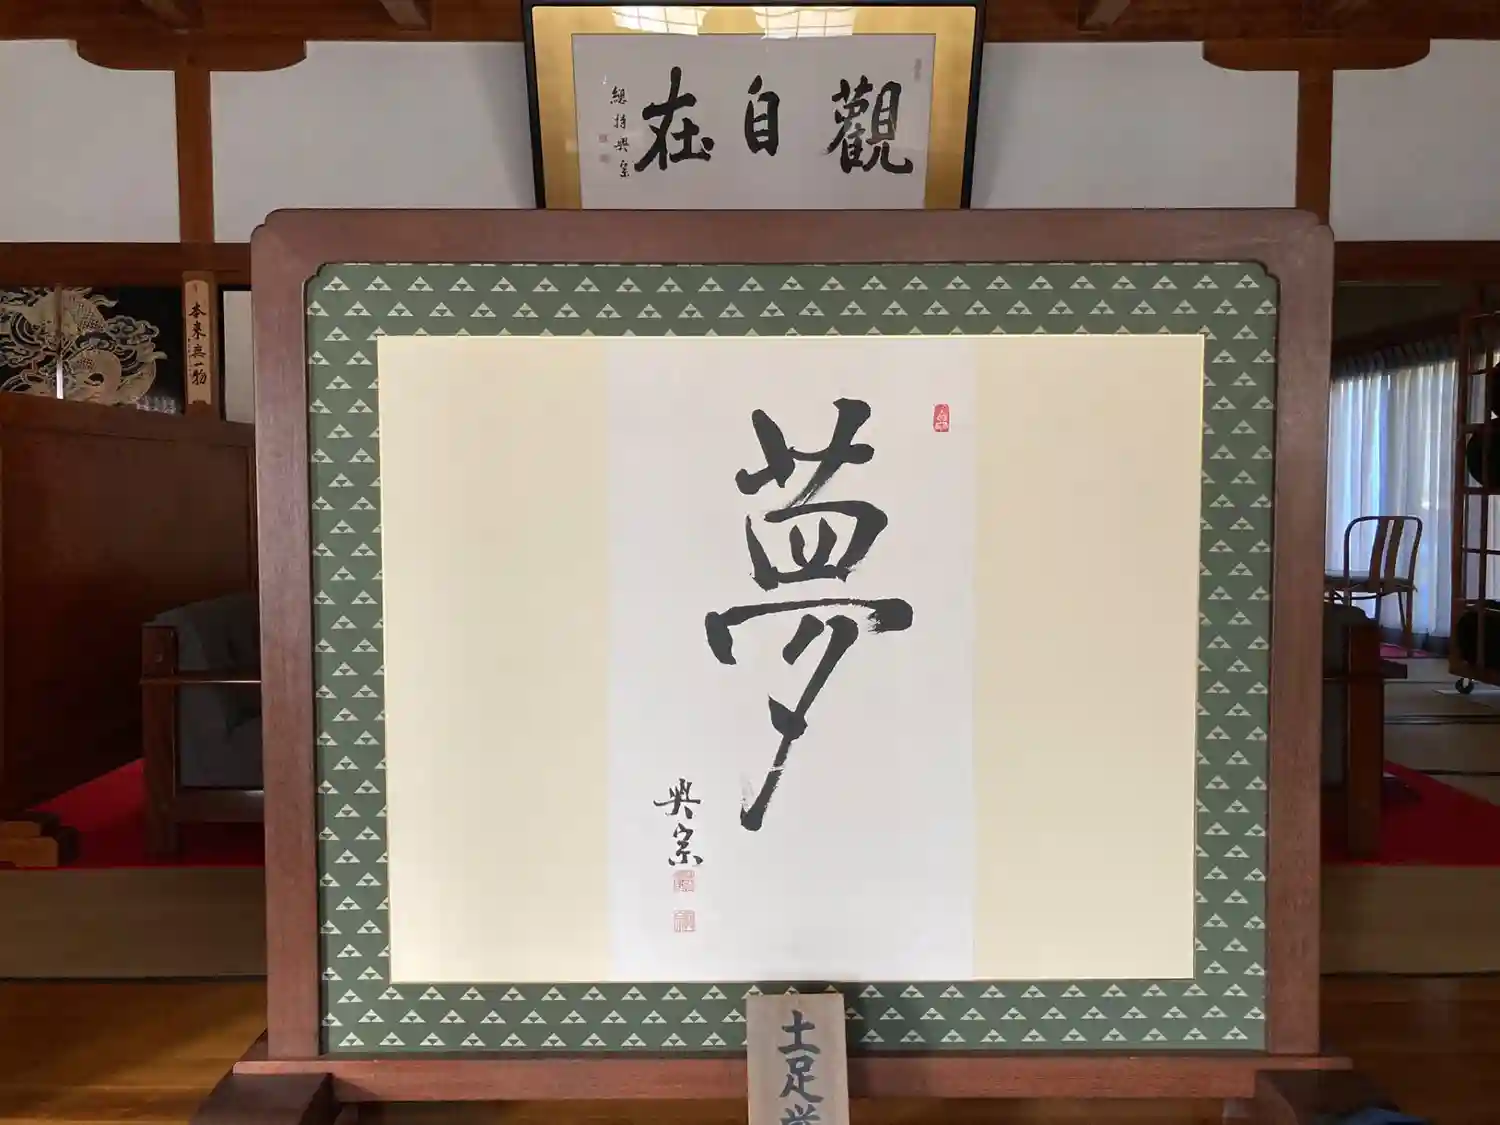 觀自在
總持興宗
本来無一物
夢
興宗
土足